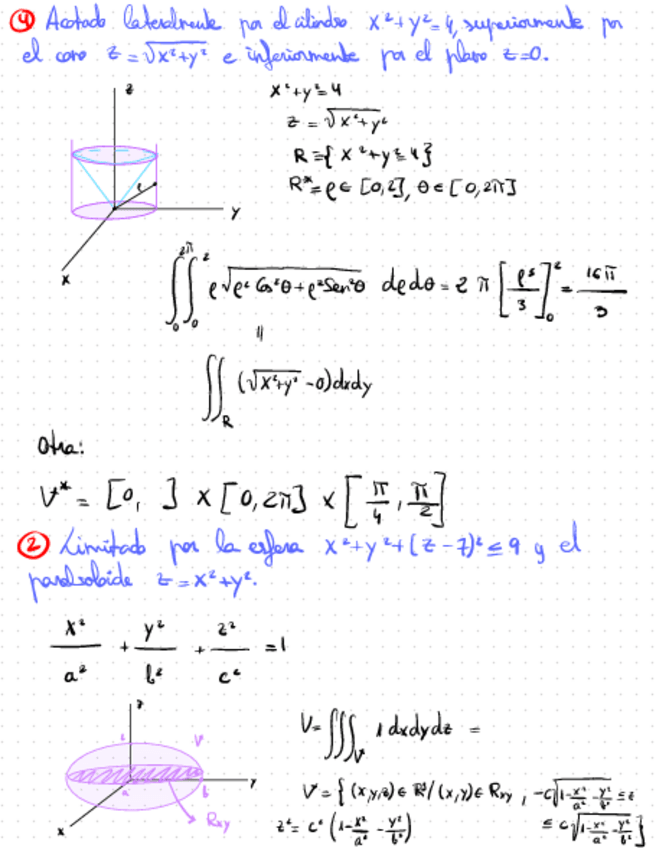 ④ Acotado lateralmente por el cilindro x²+y²=4, superiormente por
el cono z=√(x²+y²) e inferiormente por el plano z=0.
z
x²+y²=4
z = √(x²+y²)
R={x²+y²≤4}
R*=ρ∈[0,2], θ∈[0,2π]
ρ
y
x
∫₀^2π ∫₀^2 ρ√(ρ²Cos²θ+ρ²Sen²θ) dρdθ = 2π [ρ³/3]₀² = 16π/3
||
∬_R (√(x²+y²) -0)dxdy
Otra:
V* = [0, ] x [0,2π] x [π/4, π/2]
② Limitado por la esfera x²+y²+(z-7)²≤9 y el
paraboloide z=x²+y².
x²/a² + y²/b² + z²/c² =1
z
c
V
a
b
y
x
Rxy
V=∭_V 1dxdydz =
V={(x,y,z)∈R³/(x,y)∈Rxy, -c√(1-x²/a²-y²/b²) ≤z
z²= c²(1-x²/a²-y²/b²) ≤ c√(1-x²/a²-y²/b²)}